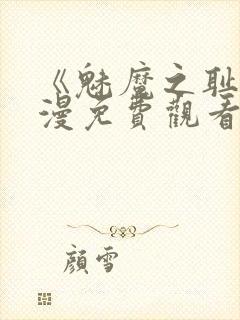 《魅魔之耻
漫免費觀看
顏雪